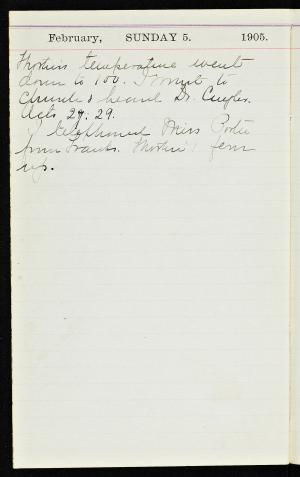 February, SUNDAY 5. 1905.
temperature went
down to 100. I went to
Church & heard Dr. Cuyler.
Acts 27. 29.
I telephoned Miss Porter
from Frank's. fever
up.